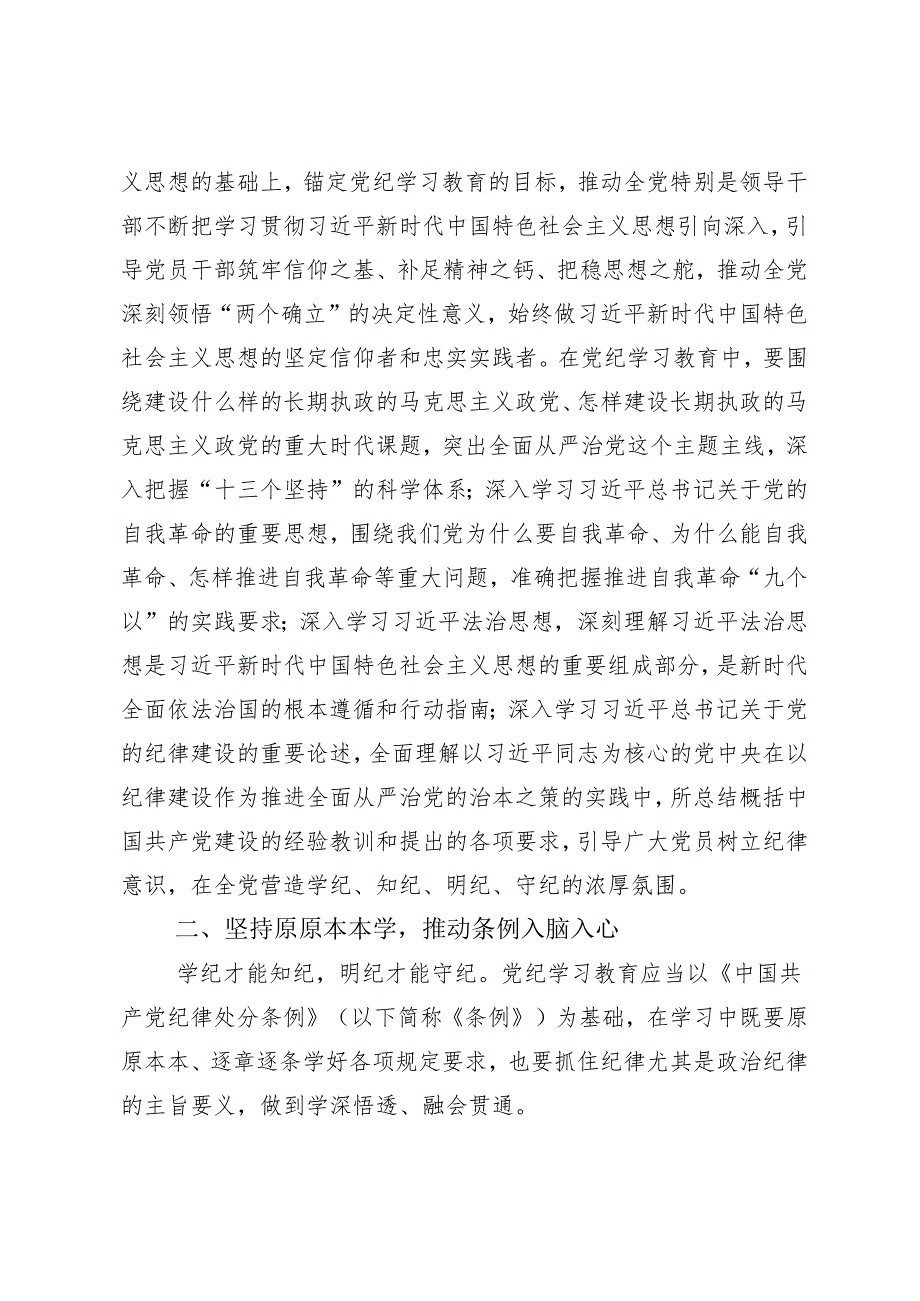 义思想的基础上，锚定党纪学习教育的目标，推动全党特别是领导干
部不断把学习贯彻习近平新时代中国特色社会主义思想引向深入，引
导党员干部筑牢信仰之基、补足精神之钙、把稳思想之舵，推动全党
深刻领悟“两个确立”的决定性意义，始终做习近平新时代中国特色
社会主义思想的坚定信仰者和忠实实践者。在党纪学习教育中，要围
绕建设什么样的长期执政的马克思主义政党、怎样建设长期执政的马
克思主义政党的重大时代课题，突出全面从严治党这个主题主线，深
入把握“十三个坚持”的科学体系；深入学习习近平总书记关于党的
自我革命的重要思想，围绕我们党为什么要自我革命、为什么能自我
革命、怎样推进自我革命等重大问题，准确把握推进自我革命“九个
以”的实践要求；深入学习习近平法治思想，深刻理解习近平法治思
想是习近平新时代中国特色社会主义思想的重要组成部分，是新时代
全面依法治国的根本遵循和行动指南；深入学习习近平总书记关于党
的纪律建设的重要论述，全面理解以习近平同志为核心的党中央在以
纪律建设作为推进全面从严治党的治本之策的实践中，所总结概括中
国共产党建设的经验教训和提出的各项要求，引导广大党员树立纪律
意识，在全党营造学纪、知纪、明纪、守纪的浓厚氛围。
二、坚持原原本本学，推动条例入脑入心
学纪才能知纪，明纪才能守纪。党纪学习教育应当以《中国共
产党纪律处分条例》（以下简称《条例》）为基础，在学习中既要原
原本本、逐章逐条学好各项规定要求，也要抓住纪律尤其是政治纪律
的主旨要义，做到学深悟透、融会贯通。